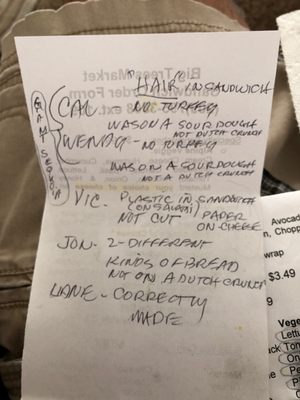 "HAIR" IN SANDWICH
CAL - NO TURKEY
WAS ON A SOURDOUGH
NOT DUTCH CRUNCH
WENDY - NO TURKEY
WAS ON A SOURDOUGH
NOT A DUTCH CRUNCH
VIC - PLASTIC IN SANDWICH
(ON SALAMI)
NOT CUT / PAPER
ON CHEESE
JON - 2 - DIFFERENT
KINDS OF BREAD
NOT ON A DUTCH CRUNCH
- CORRECTLY
MADE
Big Trees Market
Sandwich Order Form
Avocad
, Chopp
wrap
$3.49
Vege
Lettu
Tom
On
Pe